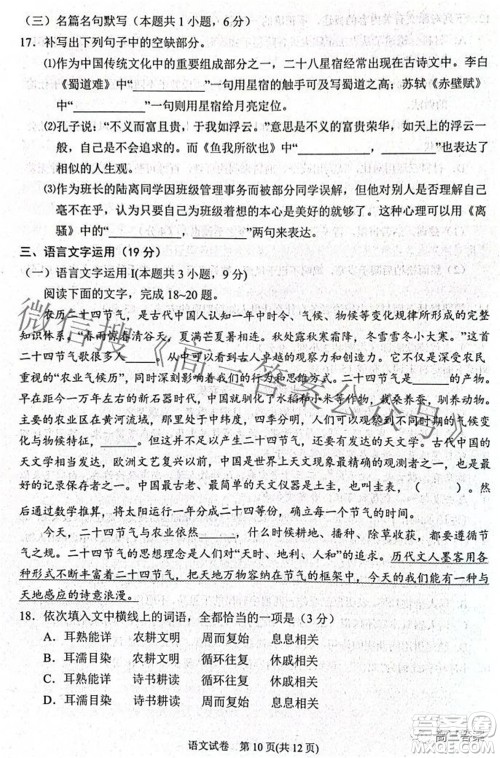 （三）名篇名句默写（本题共1小题，6分）
17．补写出下列句子中的空缺部分。
(1)作为中国传统文化中的重要组成部分，二十八星宿经常出现在古诗文中。李白
《蜀道难》中“________”一句用星宿的触手可及写蜀道之高；苏轼《赤壁赋》
中“________”一句则用星宿给月亮定位。
(2)孔子说：“不义而富且贵，于我如浮云。”意思是不义的富贵荣华，如天上的浮云一
般，自己是不会追求的。而《鱼我所欲也》中“________，________”也表达了
相似的人生观。
(3)作为班长的陆离同学因班级管理事务有时也会被部分同学误解，但他不断解释自己
毫不在乎，只要自己是为班级着想的就不会后悔。这种心理可以用《离
骚》中“________，________”两句来表达。
三、语言文字运用（19分）
（一）语言文字运用I(本题共3小题，9分）
阅读下面的文字，完成18~20题。
农历二十四节气，是古代中国人认识一年中时令、气候、物候等变化规律所形
成的知识体系。“春雨惊春清谷天，夏满芒夏暑相连。秋处露秋寒霜降，冬雪雪冬小大寒。”这
首二十四节气歌很多人______，从中能够看到古人卓越的观察力。它不仅是深受农民
重视的“农业气候历”，同时深深影响着人们的行为和思维方式。二十四节气是______的产物。
大约在八千年左右的新石器时代，中国就驯化了水稻和小米等作物，栽桑养蚕，驯养动物。
农业主产区在黄河流域，那里处于中纬度，四季分明，人们需要了解一年四季的天时
变化与物候特征，______地安排作物种植。这促进了天文学与历法的发展。古代中国的
天文学相当发达，欧洲文艺复兴以前，中国是天文现象最精确的观测者，也是最
好的记录保存者。二十四节气最早、最遵循的便是天文学意义，（　　）。
然后按照数学等分方法，将太阳回归年等分成二十四等份，确立每一个节气的时间。
今天，二十四节气与农业依然______，什么时候耕地、播种、施肥、除草、收割，
都与节气有关。二十四节气的思想理念是“天时、地利、人和”的追求。历代文人墨客用各
种形式不断丰富着二十四节气，把天地万物容纳在节气的框架中，今天我们依然能感受到一种与
天地感应的诗意浪漫。
18．依次填入文中横线上的词语，全都恰当的一项是（3分）
A．耳熟能详　农耕文明　周而复始　息息相关
B．耳濡目染　农耕文明　循环往复　休戚相关
C．耳熟能详　诗书耕读　循环往复　休戚相关
D．耳濡目染　诗书耕读　周而复始　息息相关
语文试卷　第10页(共12页)
微信搜《高三答案公众号》
高三答案